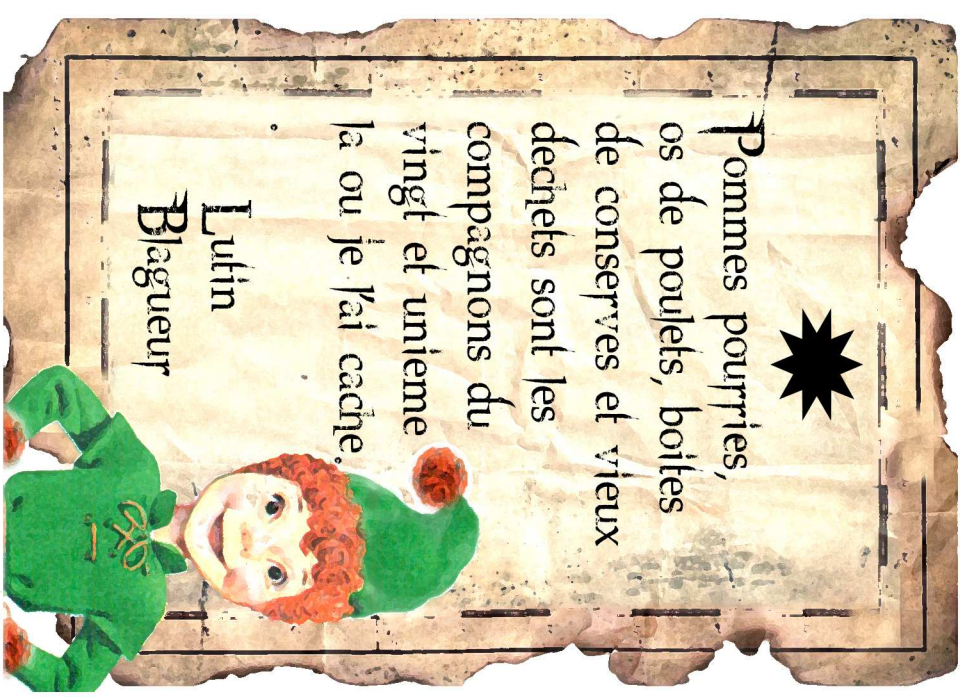 Pommes pourries,
os de poulets, boites
de conserves et vieux
dechets sont les
compagnons du
vingt et unieme
la ou je l'ai cache.
Lutin
Blagueur